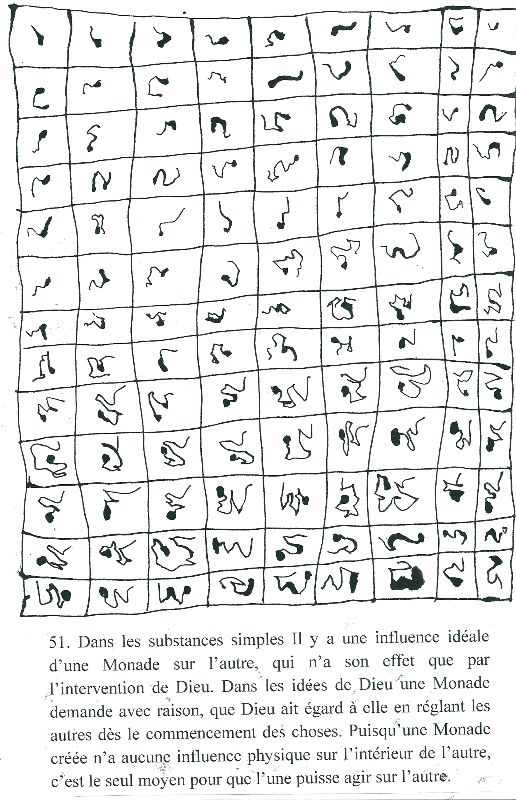 51. Dans les substances simples Il y a une influence idéale
d'une Monade sur l'autre, qui n'a son effet que par
l'intervention de Dieu. Dans les idées de Dieu une Monade
demande avec raison, que Dieu ait égard à elle en réglant les
autres dès le commencement des choses. Puisqu'une Monade
créée n'a aucune influence physique sur l'intérieur de l'autre,
c'est le seul moyen pour que l'une puisse agir sur l'autre.